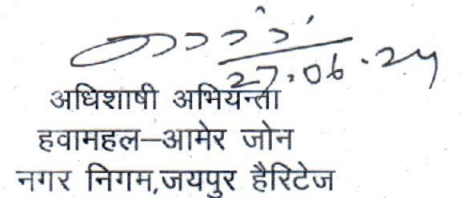 27.06.24
अधिशाषी अभियन्ता
हवामहल–आमेर जोन
नगर निगम,जयपुर हैरिटेज